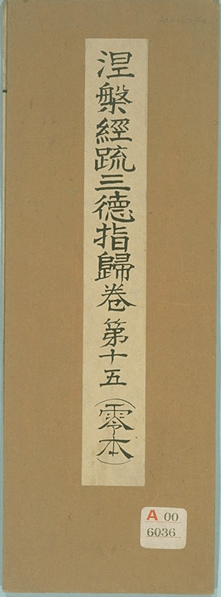 涅槃經疏三德指歸卷第十五(零本)
A 00
6036